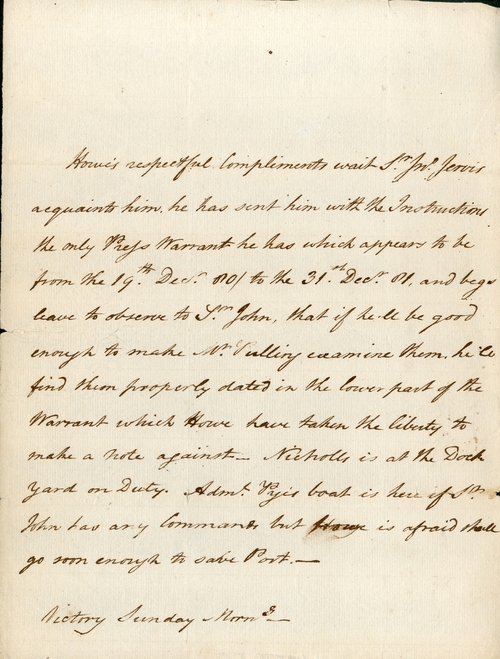 Howe's respectful Compliments wait Sr. Jno. Jervis
acquaints him, he has sent him with the Instructions
the only Press Warrant he has which appears to be
from the 19th. Decr. 80/ to the 31st. Decr. 81, and begs
leave to observe to Sr. John, that if he'll be good
enough to make Mr. examine them, he'll
find them properly dated in the lower part of the
Warrant which Howe have taken the liberty to
make a note against— Nicholls is at the Dock
yard on Duty. Adml. Pye's boat is here if Sr.
John has any Commands but Howe is afraid shall
go soon enough to save Post.—
Victory Sunday Morng.—